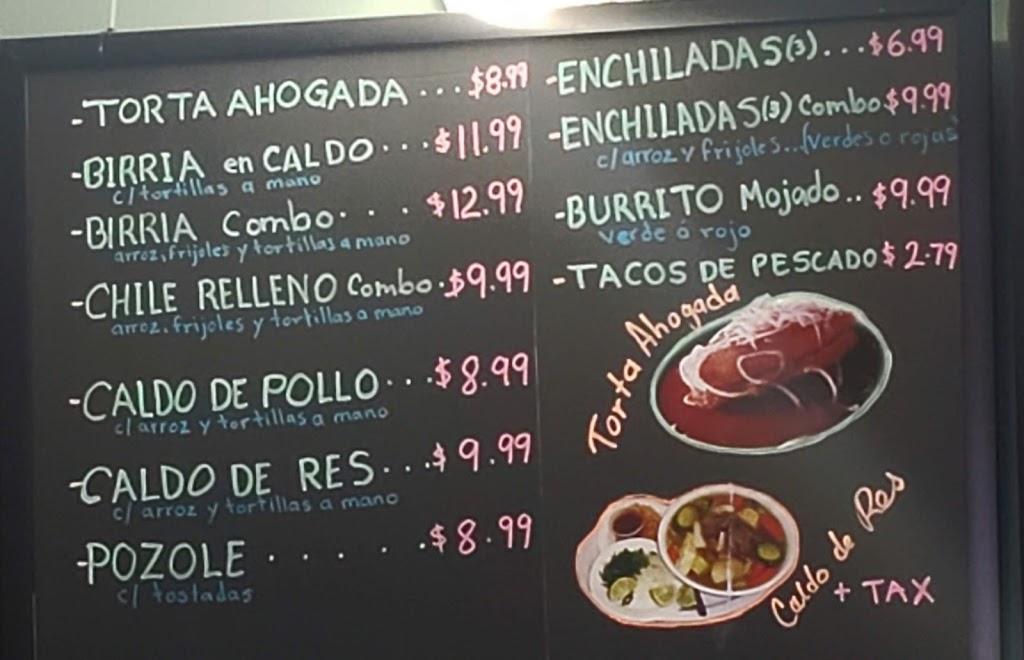 -TORTA AHOGADA...$8.99
-BIRRIA en CALDO...$11.99
c/tortillas a mano
-BIRRIA Combo...$12.99
arroz, frijoles y tortillas a mano
-CHILE RELLENO Combo.$9.99
arroz, frijoles y tortillas a mano
-CALDO DE POLLO...$8.99
c/arroz y tortillas a mano
-CALDO DE RES...$9.99
c/ arroz y tortillas a mano
-POZOLE......$8.99
c/ tostadas
-ENCHILADAS(3)...$6.99
-ENCHILADAS(3) Combo $9.99
c/arroz y frijoles...(verdes o rojas)
-BURRITO Mojado..$9.99
verde ó rojo
-TACOS DE PESCADO $2.79
Torta Ahogada
Caldo de Res
+ TAX